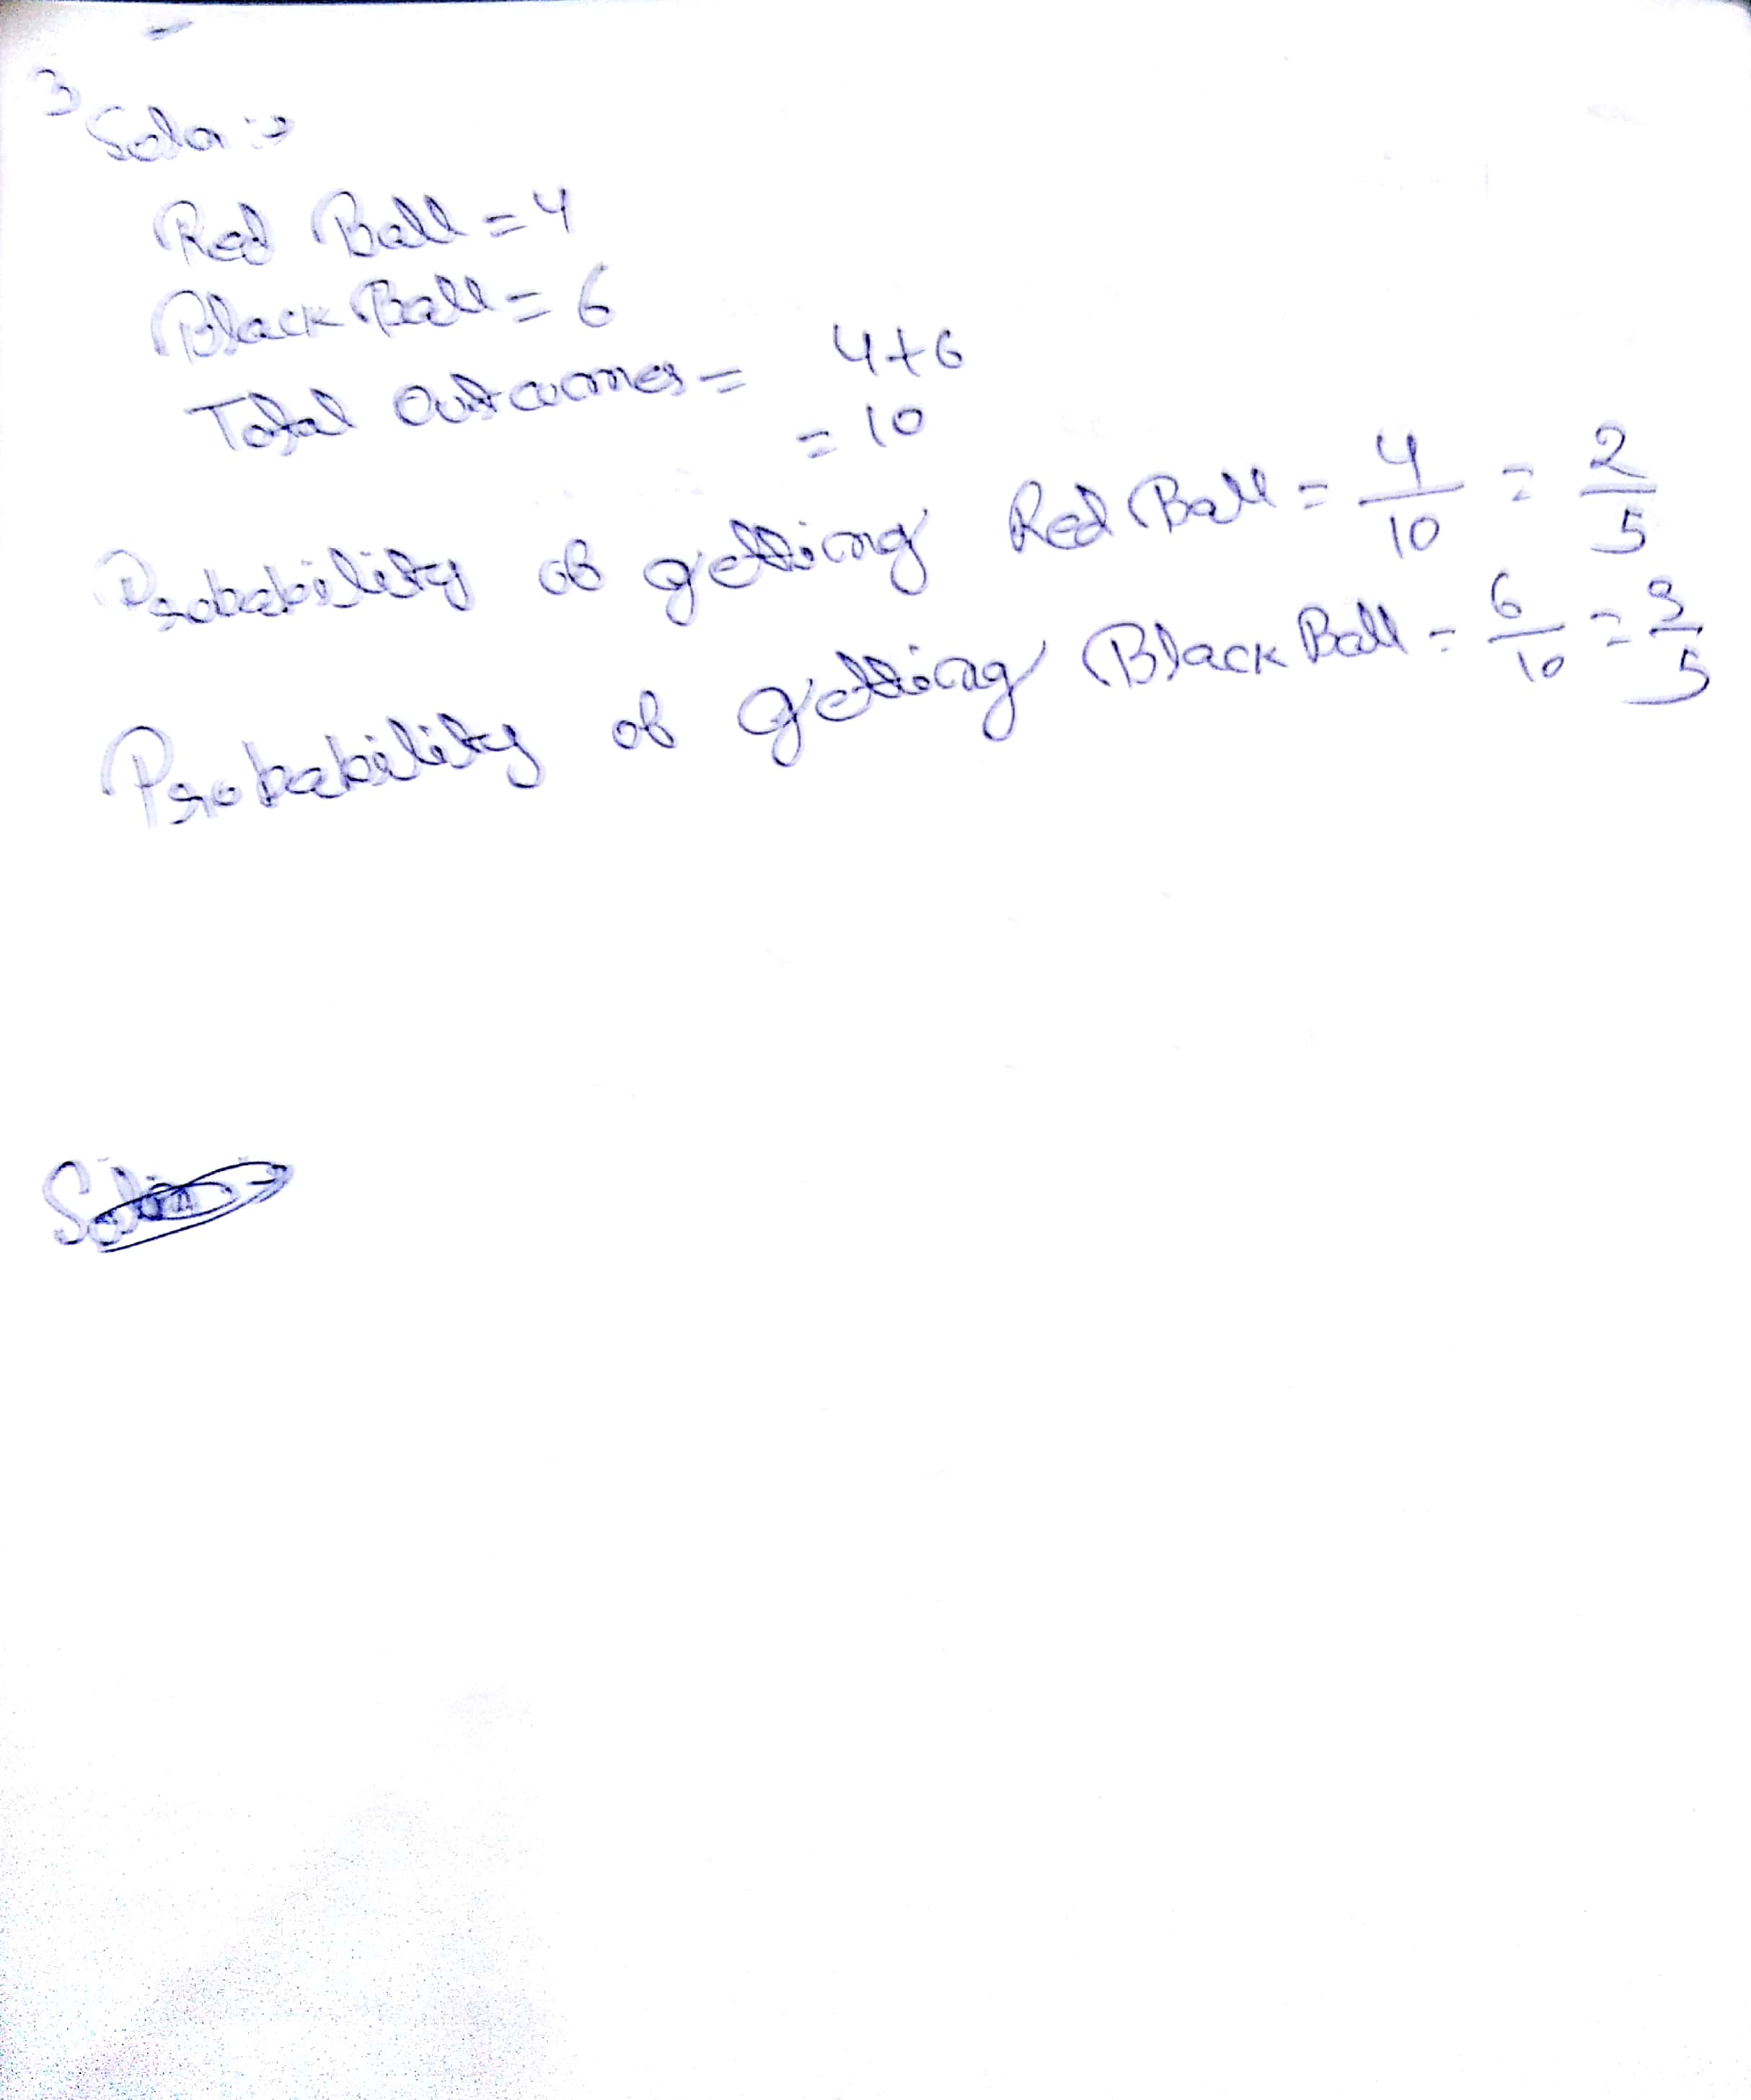 3
Soln :->
Red Ball = 4
Black Ball = 6
Total Outcomes = 4+6
= 10
Probability of getting Red Ball = 4/10 = 2/5
Probability of getting Black Ball = 6/10 = 3/5